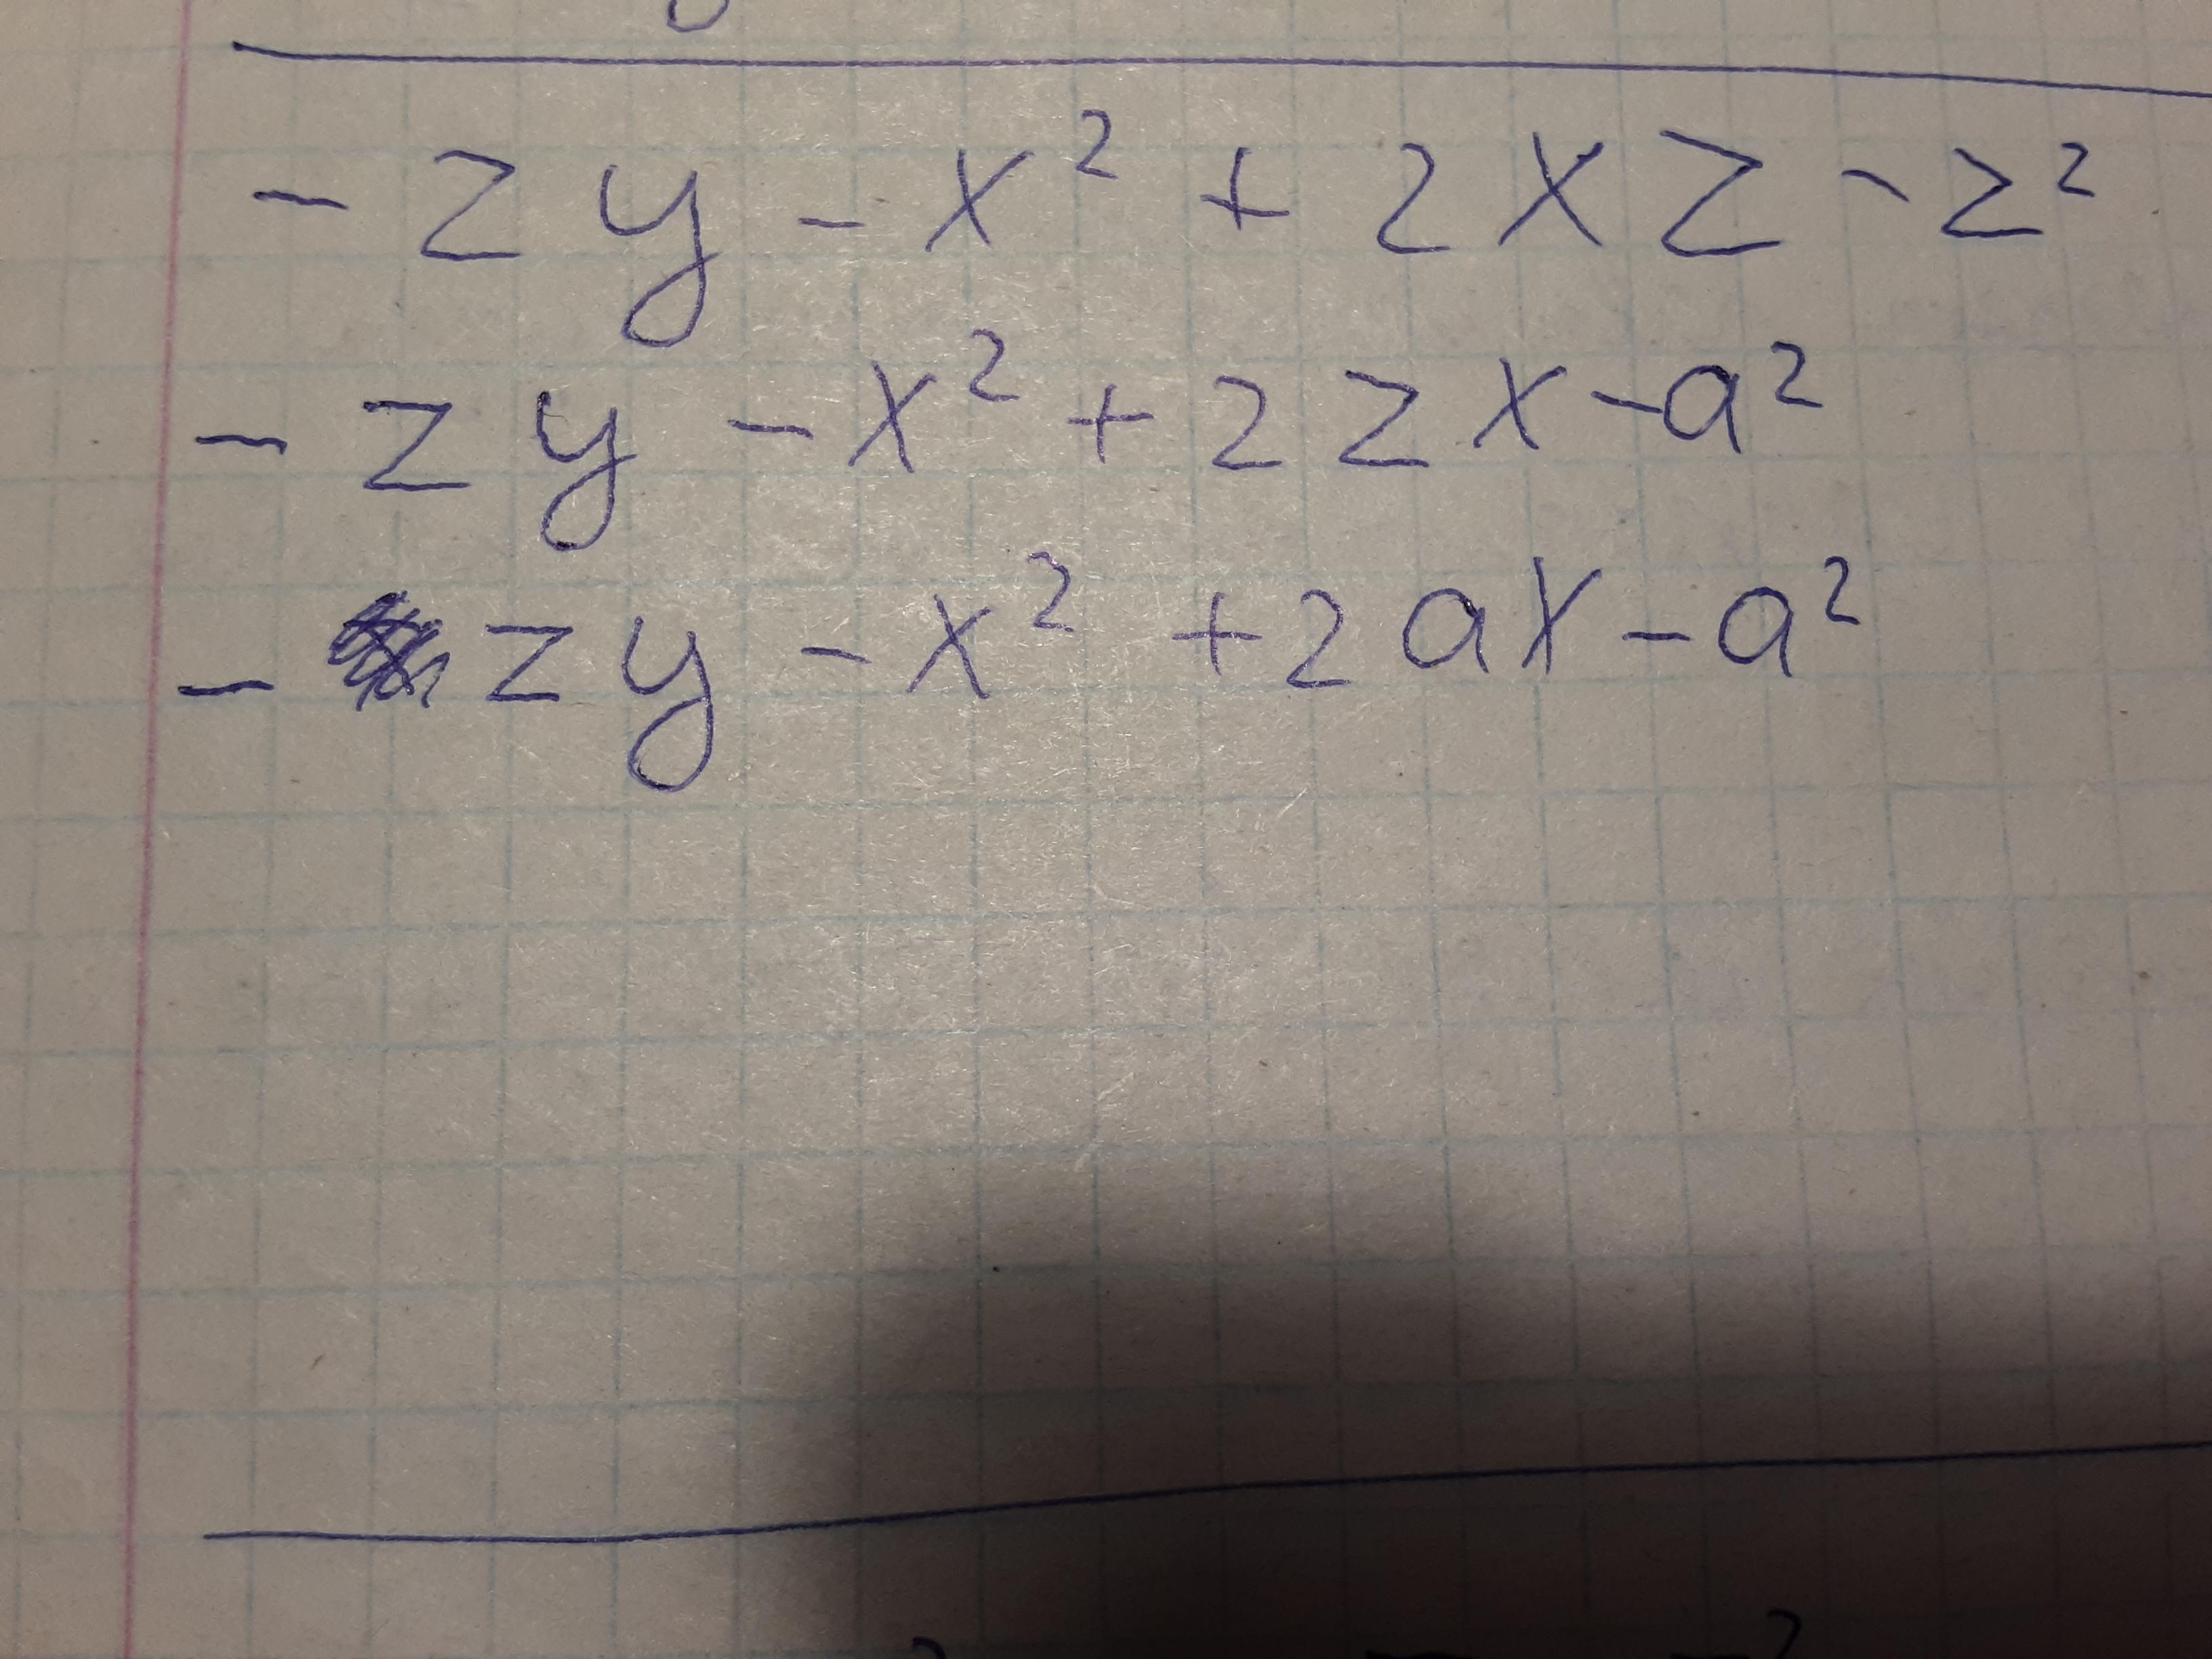 - z y - x² + 2 x z - z²
- z y - x² + 2 z x - a²
- z y - x² + 2 a x - a²